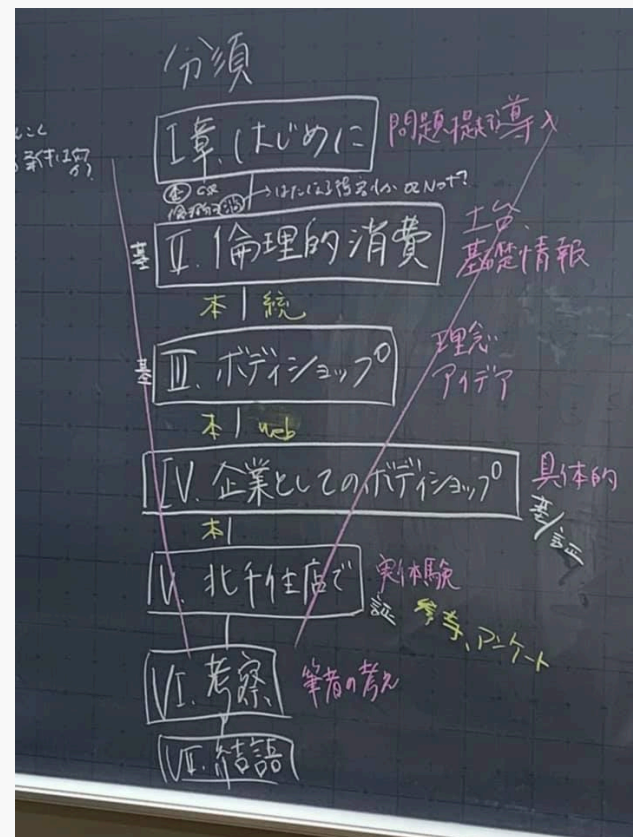 分須
I章.はじめに
問題提起導入
II.倫理的消費
基
土台、
基礎情報
本 統
III.ボディショップ
基
理念
アイデア
本 web
IV.企業としてのボディショップ
具体的
基/証
本
V.北千住店で
実体験
証
参与、アンケート
VI.考察
筆者の考え
VII.結語